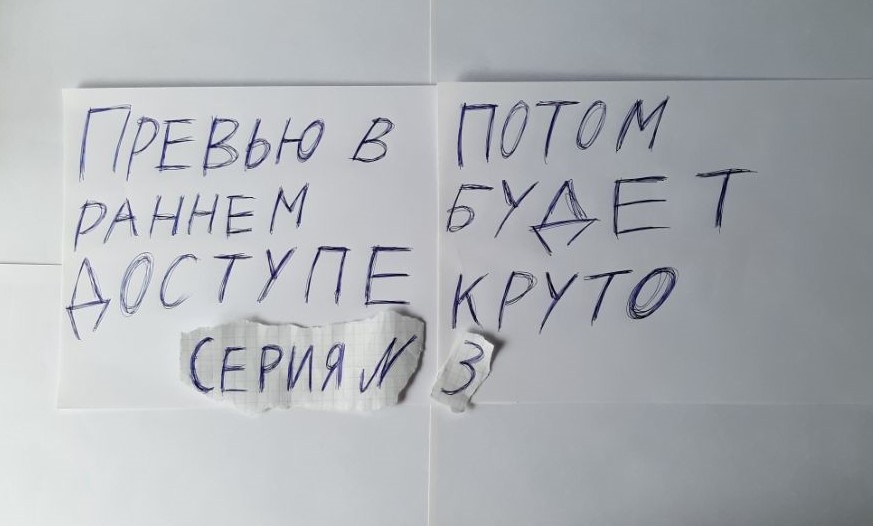 ПРЕВЬЮ В
РАННЕМ
ДОСТУПЕ
ПОТОМ
БУДЕТ
КРУТО
СЕРИЯ N 3